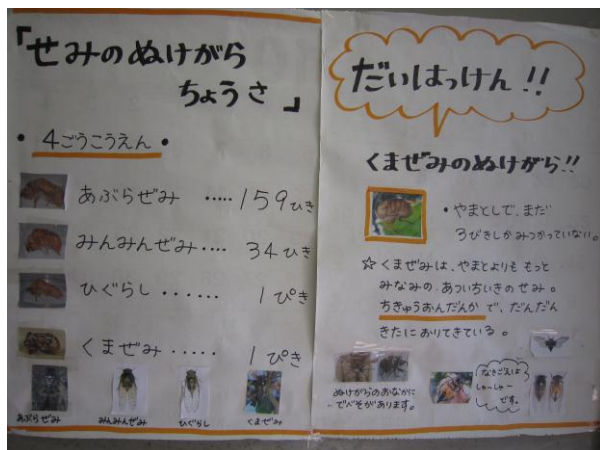 「せみのぬけがら
ちょうさ」
・4ごうこうえん・
あぶらぜみ ‥‥‥159ひき
みんみんぜみ‥‥ 34ひき
ひぐらし ‥‥‥ 1ぴき
くまぜみ ‥‥‥ 1ぴき
あぶらぜみ みんみんぜみ ひぐらし くまぜみ
だいはっけん!!
くまぜみのぬけがら!!
・やまとしで、まだ
3びきしかみつかっていない。
☆くまぜみは、やまとよりももっと
みなみの、あついちいきのせみ。
ちきゅうおんだんかで、だんだん
きたにおりてきている。
ぬけがらのおなかに
でべそがあります。
なきごえは
しゅっしゅー
です。